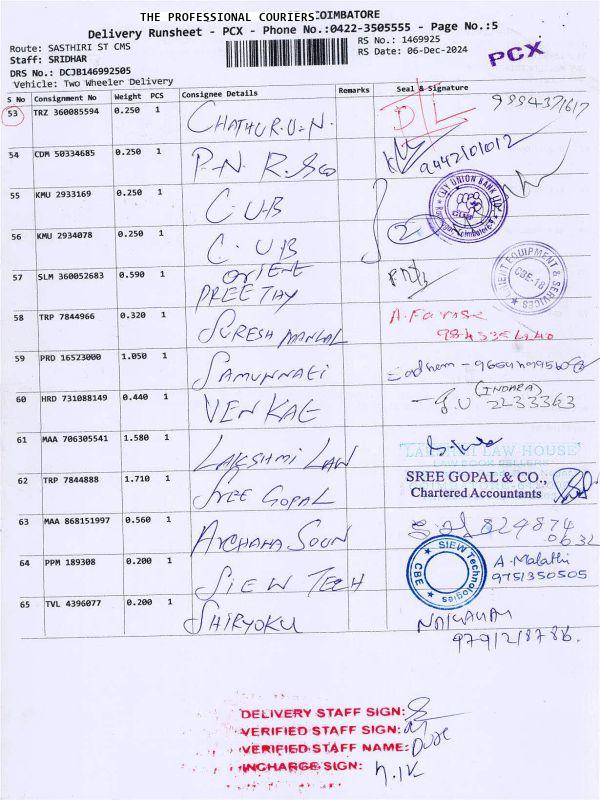 THE PROFESSIONAL COURIERS COIMBATORE
Delivery Runsheet - PCX - Phone No.:0422-3505555 - Page No.:5
Route: SASTHIRI ST CMS
RS No.: 1469925
Staff: SRIDHAR
RS Date: 06-Dec-2024
PCX
DRS No.: DCJB146992505
Vehicle: Two Wheeler Delivery
S No Consignment No Weight PCS Consignee Details Remarks Seal & Signature
53 TRZ 360085594 0.250 1 CHATHUR.U.N. D/L 9994371617
54 CDM 50334685 0.250 1 P.N.R. 9442101012
55 KMU 2933169 0.250 1 C.U.B CITY UNION BANK LTD
56 KMU 2934078 0.250 1 C.U.B 2
57 SLM 360052683 0.590 1 ORIENT PREETHY EQUIPMENT & SERVICES CBE-18
58 TRP 7844966 0.320 1 SURESH
59 PRD 16523000 1.050 1 SAMUNNATI
60 HRD 731088149 0.440 1 VENKAT (INDHRA) 2233363
61 MAA 706305541 1.580 1 LAKSHMI LAW LAW HOUSE
LAW BOOK SELLERS
62 TRP 7844888 1.710 1 SREE GOPAL SREE GOPAL & CO.,
Chartered Accountants
63 MAA 868151997 0.560 1 ARCHANA 824874
0632
64 PPM 189308 0.200 1 SIEW TECH SIEW Technologies CBE A. Malathi
9751350505
65 TVL 4396077 0.200 1 SHIRYOKU
9791218786.
DELIVERY STAFF SIGN:
VERIFIED STAFF SIGN:
VERIFIED STAFF NAME:
INCHARGE SIGN: